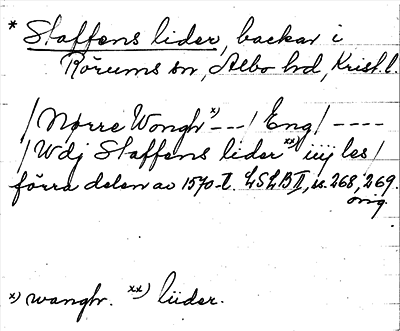 * Staffens lider, backar i
Rörums sn, Albo hd, Krist. l.
/ Nørre Wongh x) --- / Eng / ----
/ Wdj Staffens lider xx) iiij les /
förra delen av 1570-t. LSLB II, s. 268, 269.
orig.
x) wangh. xx) liider.